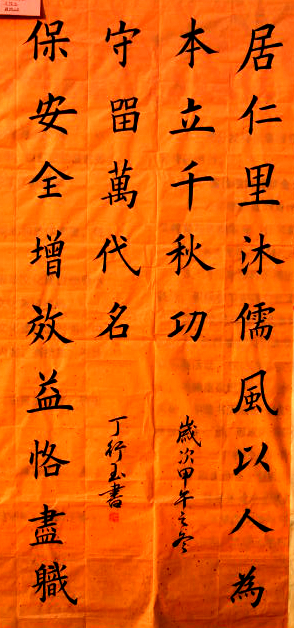 居仁里沐儒風以人為
本立千秋功
歲次甲午之冬
保安全增效益恪盡職
守㽞萬代名
丁行玉書